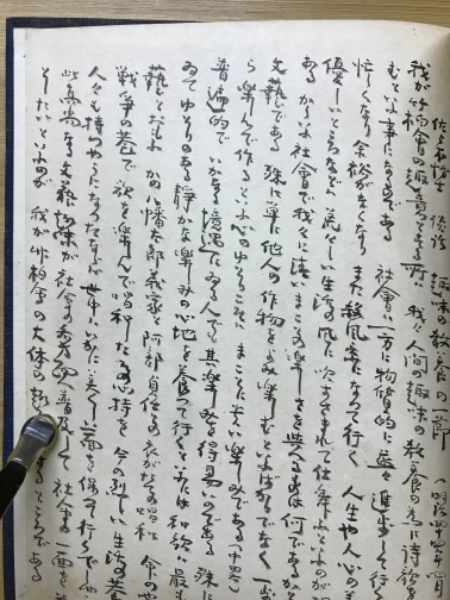 佐々木博士 談話 趣味の教養の一節 (明治四十四年四月
我が竹柏會の趣意とする所は 我々人間の趣味の教養の為に詩歌を
むといふ事になるのである 社會は一方に物質的に益々進歩して行く
忙しくなり余裕がなくなり また殺風景になつて行く 人生や人心の美
優しいところなど荒々しい生活の風に吹きすさまれて仕舞ふといふのが
ある かゝる社會で我々に清いまことの楽しさを與へるものは何であるか
文藝である 殊に単に他人の作物をよみ楽しむといふばかりでなく 一歩
ら楽んで作るといふ心のゆとりこそは まことに尊い楽しみである(中略)
普遍的で いかなる境遇にある人でも其楽しみを得易いのである 殊に
ゐてゆとりのある静かな楽しみの心地を養つて行くといふには和歌が最も
藝とおもふ かの八幡太郎義家と阿部貞任との衣がなの唱和 命のや
戦争の巷で歌を楽んで唱和した心持を 今の烈しい生活の巷
人々も持つやうになつたならば 世の中はいかに美くしい面を保つて行くでしやう
此真面目なる文藝趣味が社會の各方面へ普及して 社會の一面を美
りたいといふのが 我が竹柏會の大体の趣 するところである